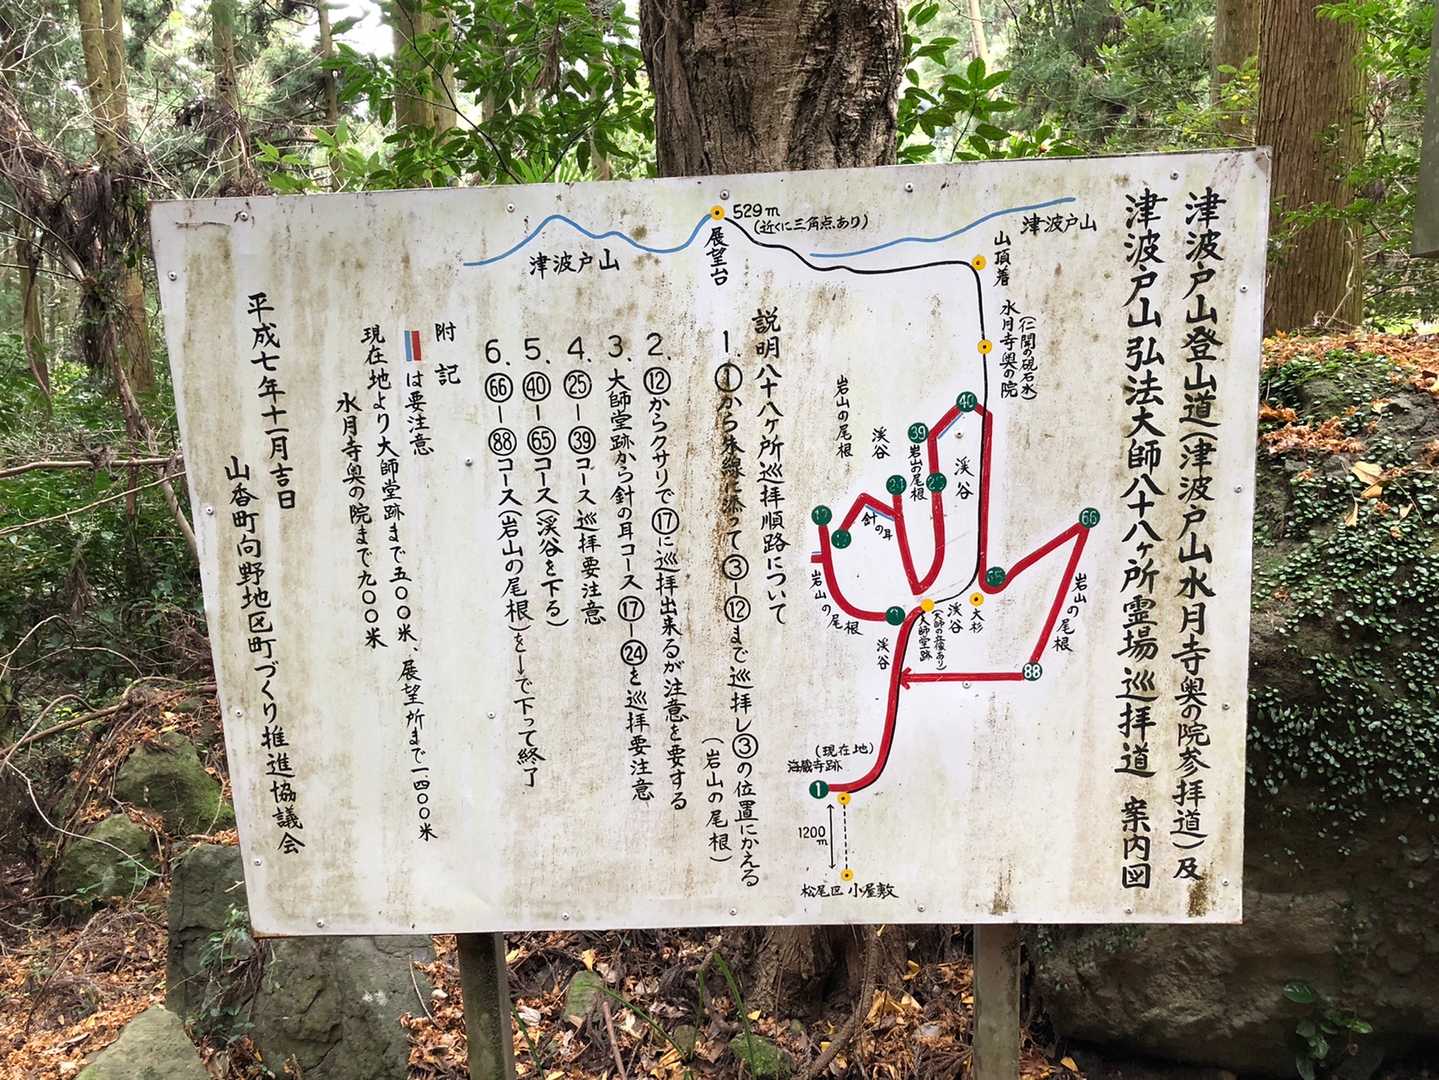 津波戸山登山道(津波戸山水月寺奥の院参拝道)及
津波戸山弘法大師八十八ヶ所霊場巡拝道 案内図
津波戸山
津波戸山
529m
(近くに三角点あり)
展望台
山頂着
(仁聞の硯石水)
水月寺奥の院
岩山の尾根
渓谷
岩山の尾根
渓谷
40
39
針の耳
17
66
65
88
岩山の尾根
岩山の尾根
渓谷
渓谷
大杉
大師堂跡
3
(現在地)
海蔵寺跡
1
1200m
松尾区 小屋敷
説明八十八ヶ所巡拝順路について
1.①から朱線に添って③−⑫まで巡拝し③の位置にかえる
(岩山の尾根)
2.⑫からクサリで⑰に巡拝出来るが注意を要する
3.大師堂跡から針の耳コース⑰−㉔を巡拝要注意
4.㉕−㊴コース巡拝要注意
5.㊵−65コース(渓谷を下る)
6.66−88コース(岩山の尾根)を←↓で下って終了
附記
は要注意
現在地より大師堂跡まで五〇〇米、展望所まで一四〇〇米
水月寺奥の院まで九〇〇米
平成七年十一月吉日
山香町向野地区町づくり推進協議会